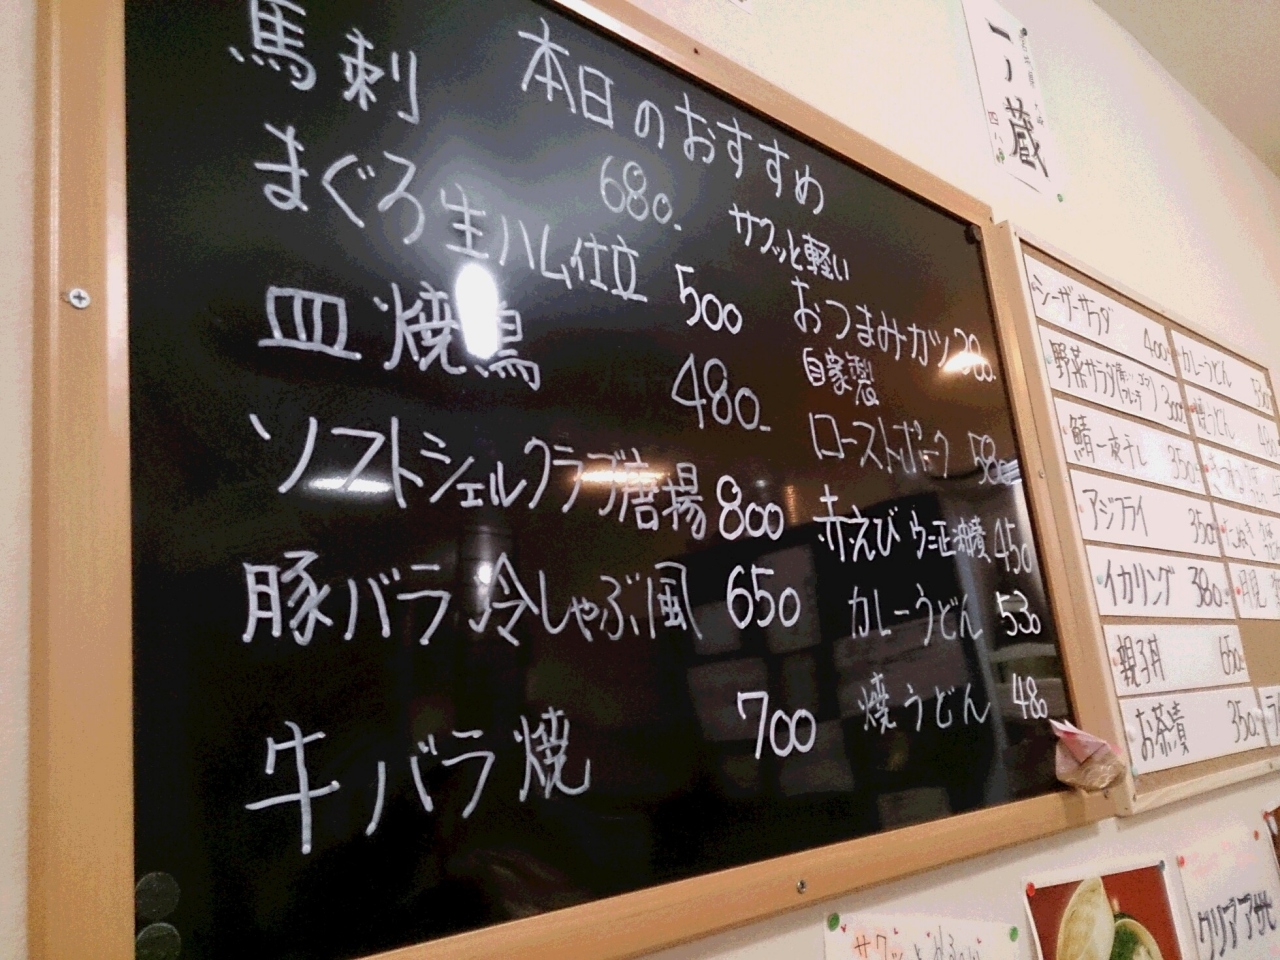 本日のおすすめ
馬刺 680.
まぐろ生ハム仕立 500
皿焼鳥 480-
ソフトシェルクラブ唐揚 800
豚バラ冷しゃぶ風 650
牛バラ焼 700
サクッと軽い
おつまみカツ
自家製
ローストポーク 580
赤えび 油漬 450
カレーうどん 530
焼うどん 480
一ノ蔵
シーザーサラダ 400-
野菜サラダ 300
鯖一夜干し 350
アジフライ 350
イカリング 380-
親子丼 650-
お茶漬 350-
カレーうどん
焼うどん
サクッと
クリアアサヒ